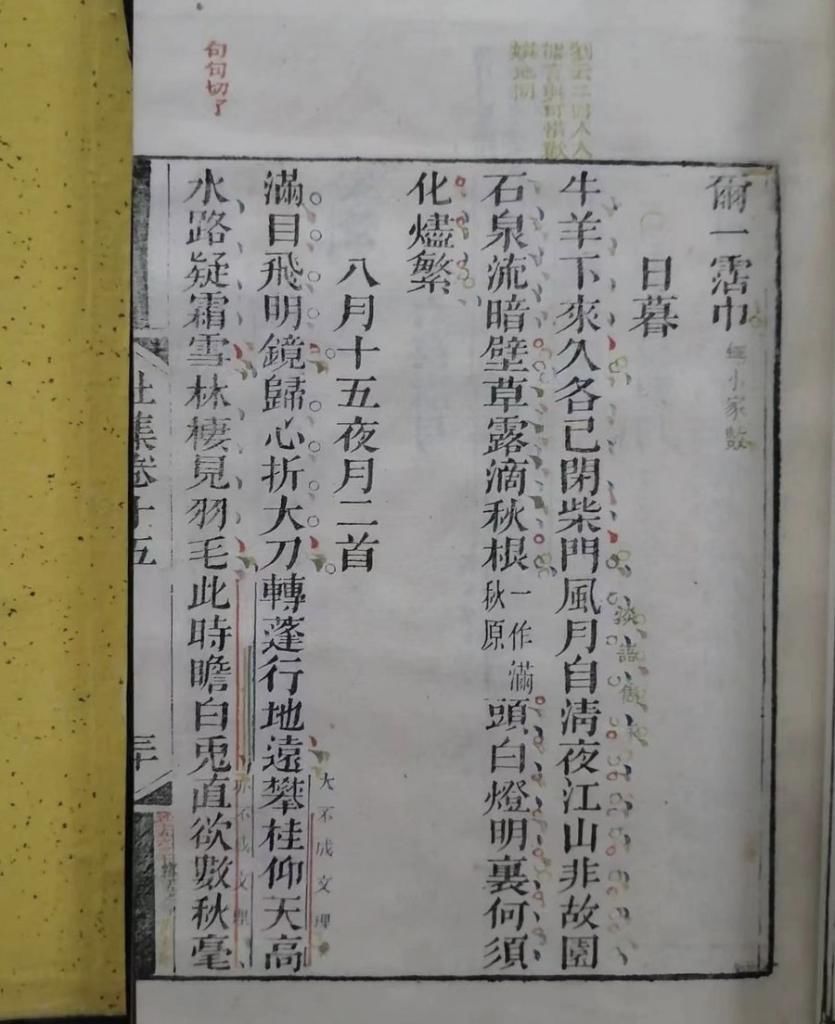 劉云三四人人
能言與可惜歡
娛地同
句句切了
爾一霑巾
小家數
日暮
牛羊下來久各已閉柴門風月自清夜江山非故園
淡語
石泉流暗壁草露滴秋根一作滿秋原頭白燈明裏何須
化燼繁
八月十五夜月二首
滿目飛明鏡歸心折大刀轉蓬行地遠攀桂仰天高
大不成文理
水路疑霜雪林棲見羽毛此時瞻白兎直欲數秋毫
亦不成文理
杜集卷十五